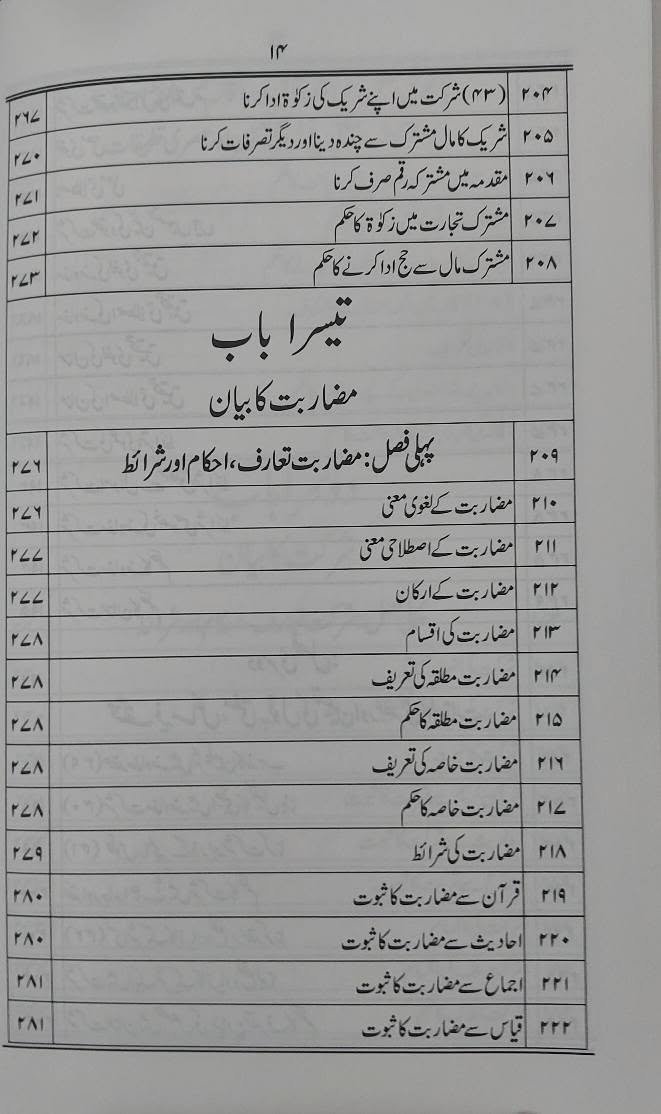 ۱۴
۲۰۴ (۴۳) شرکت میں اپنے شریک کی زکوٰۃ ادا کرنا ۲۶۷
۲۰۵ شریک کا مال مشترک سے چندہ دینا اور دیگر تصرفات کرنا ۲۷۰
۲۰۶ مقدمہ میں مشترکہ رقم صرف کرنا ۲۷۱
۲۰۷ مشترک تجارت میں زکوٰۃ کا حکم ۲۷۲
۲۰۸ مشترک مال سے حج ادا کرنے کا حکم ۲۷۳
تیسرا باب
مضاربت کا بیان
۲۰۹ پہلی فصل: مضاربت تعارف، احکام اور شرائط ۲۷۶
۲۱۰ مضاربت کے لغوی معنی ۲۷۶
۲۱۱ مضاربت کے اصطلاحی معنی ۲۷۷
۲۱۲ مضاربت کے ارکان ۲۷۷
۲۱۳ مضاربت کی اقسام ۲۷۸
۲۱۴ مضاربت مطلقہ کی تعریف ۲۷۸
۲۱۵ مضاربت مطلقہ کا حکم ۲۷۸
۲۱۶ مضاربت خاصہ کی تعریف ۲۷۸
۲۱۷ مضاربت خاصہ کا حکم ۲۷۸
۲۱۸ مضاربت کی شرائط ۲۷۹
۲۱۹ قرآن سے مضاربت کا ثبوت ۲۸۰
۲۲۰ احادیث سے مضاربت کا ثبوت ۲۸۰
۲۲۱ اجماع سے مضاربت کا ثبوت ۲۸۱
۲۲۲ قیاس سے مضاربت کا ثبوت ۲۸۱